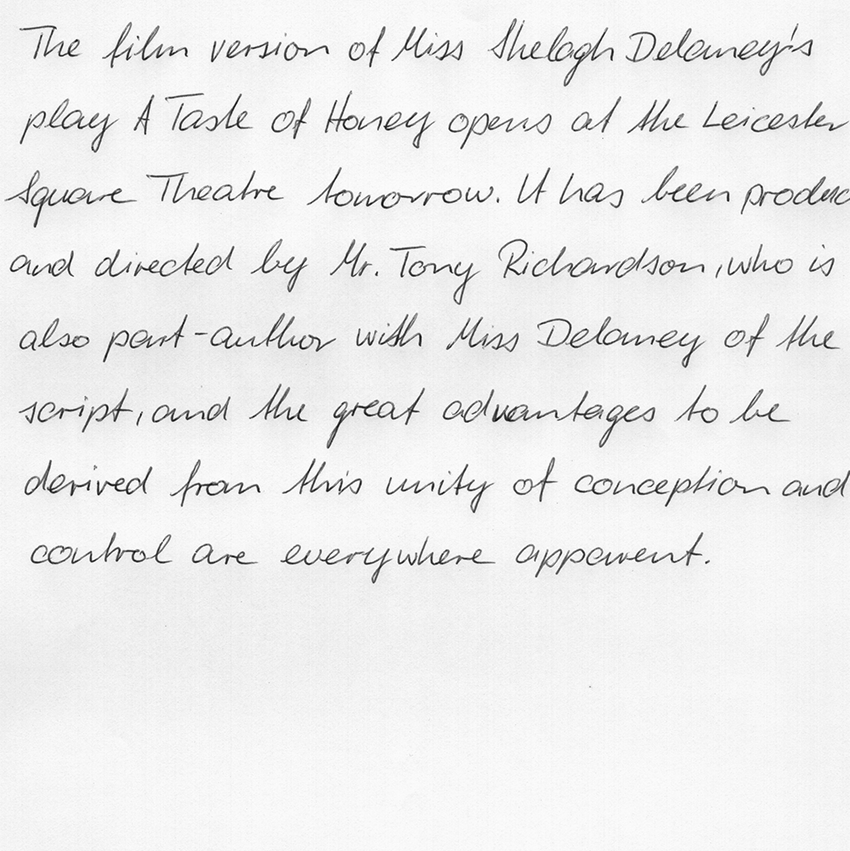 The film version of Miss Shelagh Delaney's
play A Taste of Honey opens at the Leicester
Square Theatre tomorrow. It has been produc
and directed by Mr. Tony Richardson, who is
also part-author with Miss Delaney of the
script, and the great advantages to be
derived from this unity of conception and
control are everywhere apparent.